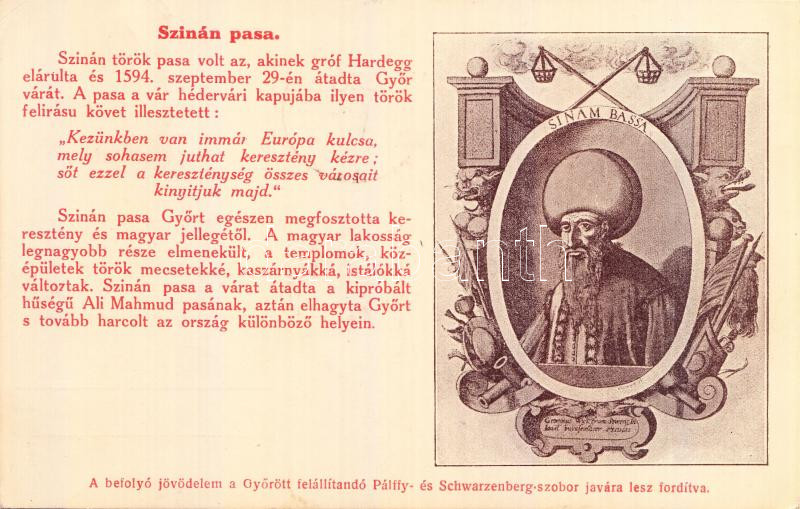 Szinán pasa.
Szinán török pasa volt az, akinek gróf Hardegg
elárulta és 1594. szeptember 29-én átadta Győr
várát. A pasa a vár hédervári kapujába ilyen török
felirásu követ illesztetett :
„Kezünkben van immár Európa kulcsa,
mely sohasem juthat keresztény kézre ;
sőt ezzel a kereszténység összes városait
kinyitjuk majd.“
Szinán pasa Győrt egészen megfosztotta ke-
resztény és magyar jellegétől. A magyar lakosság
legnagyobb része elmenekült, a templomok, köz-
épületek török mecsetekké, kaszárnyákká, istálókká
változtak. Szinán pasa a várat átadta a kipróbált
hűségű Ali Mahmud pasának, aztán elhagyta Győrt
s tovább harcolt az ország különböző helyein.
SINAM BASSA
A befolyó jövödelem a Győrött felállítandó Pálffy- és Schwarzenberg-szobor javára lesz fordítva.